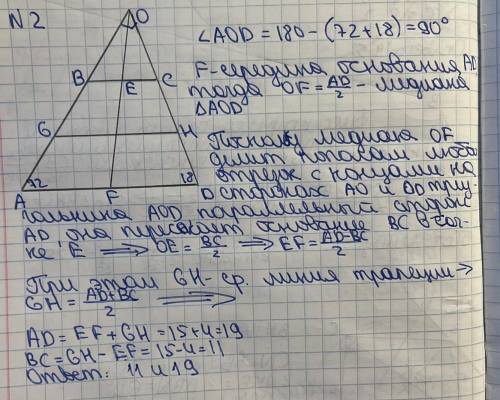 N2
O
∠AOD = 180 - (72 + 18) = 90°
F - середина основания AD,
тогда OF = AD/2 - медиана
ΔAOD
B
C
E
G
H
72
18
A
F
D
Поскольку медиана OF
делит пополам любой
отрезок с концами на
сторонах AO и OD треу-
гольника AOD параллельный стороне
AD, она пересекает основание BC в точ-
ке E ⟹ OE = BC/2 ⟹ EF = AD-BC/2
При этом GH - ср. линия трапеции →
GH = AD+BC/2 ⟹
AD = EF + GH = 15 + 4 = 19
BC = GH - EF = 15 - 4 = 11
Ответ: 11 и 19